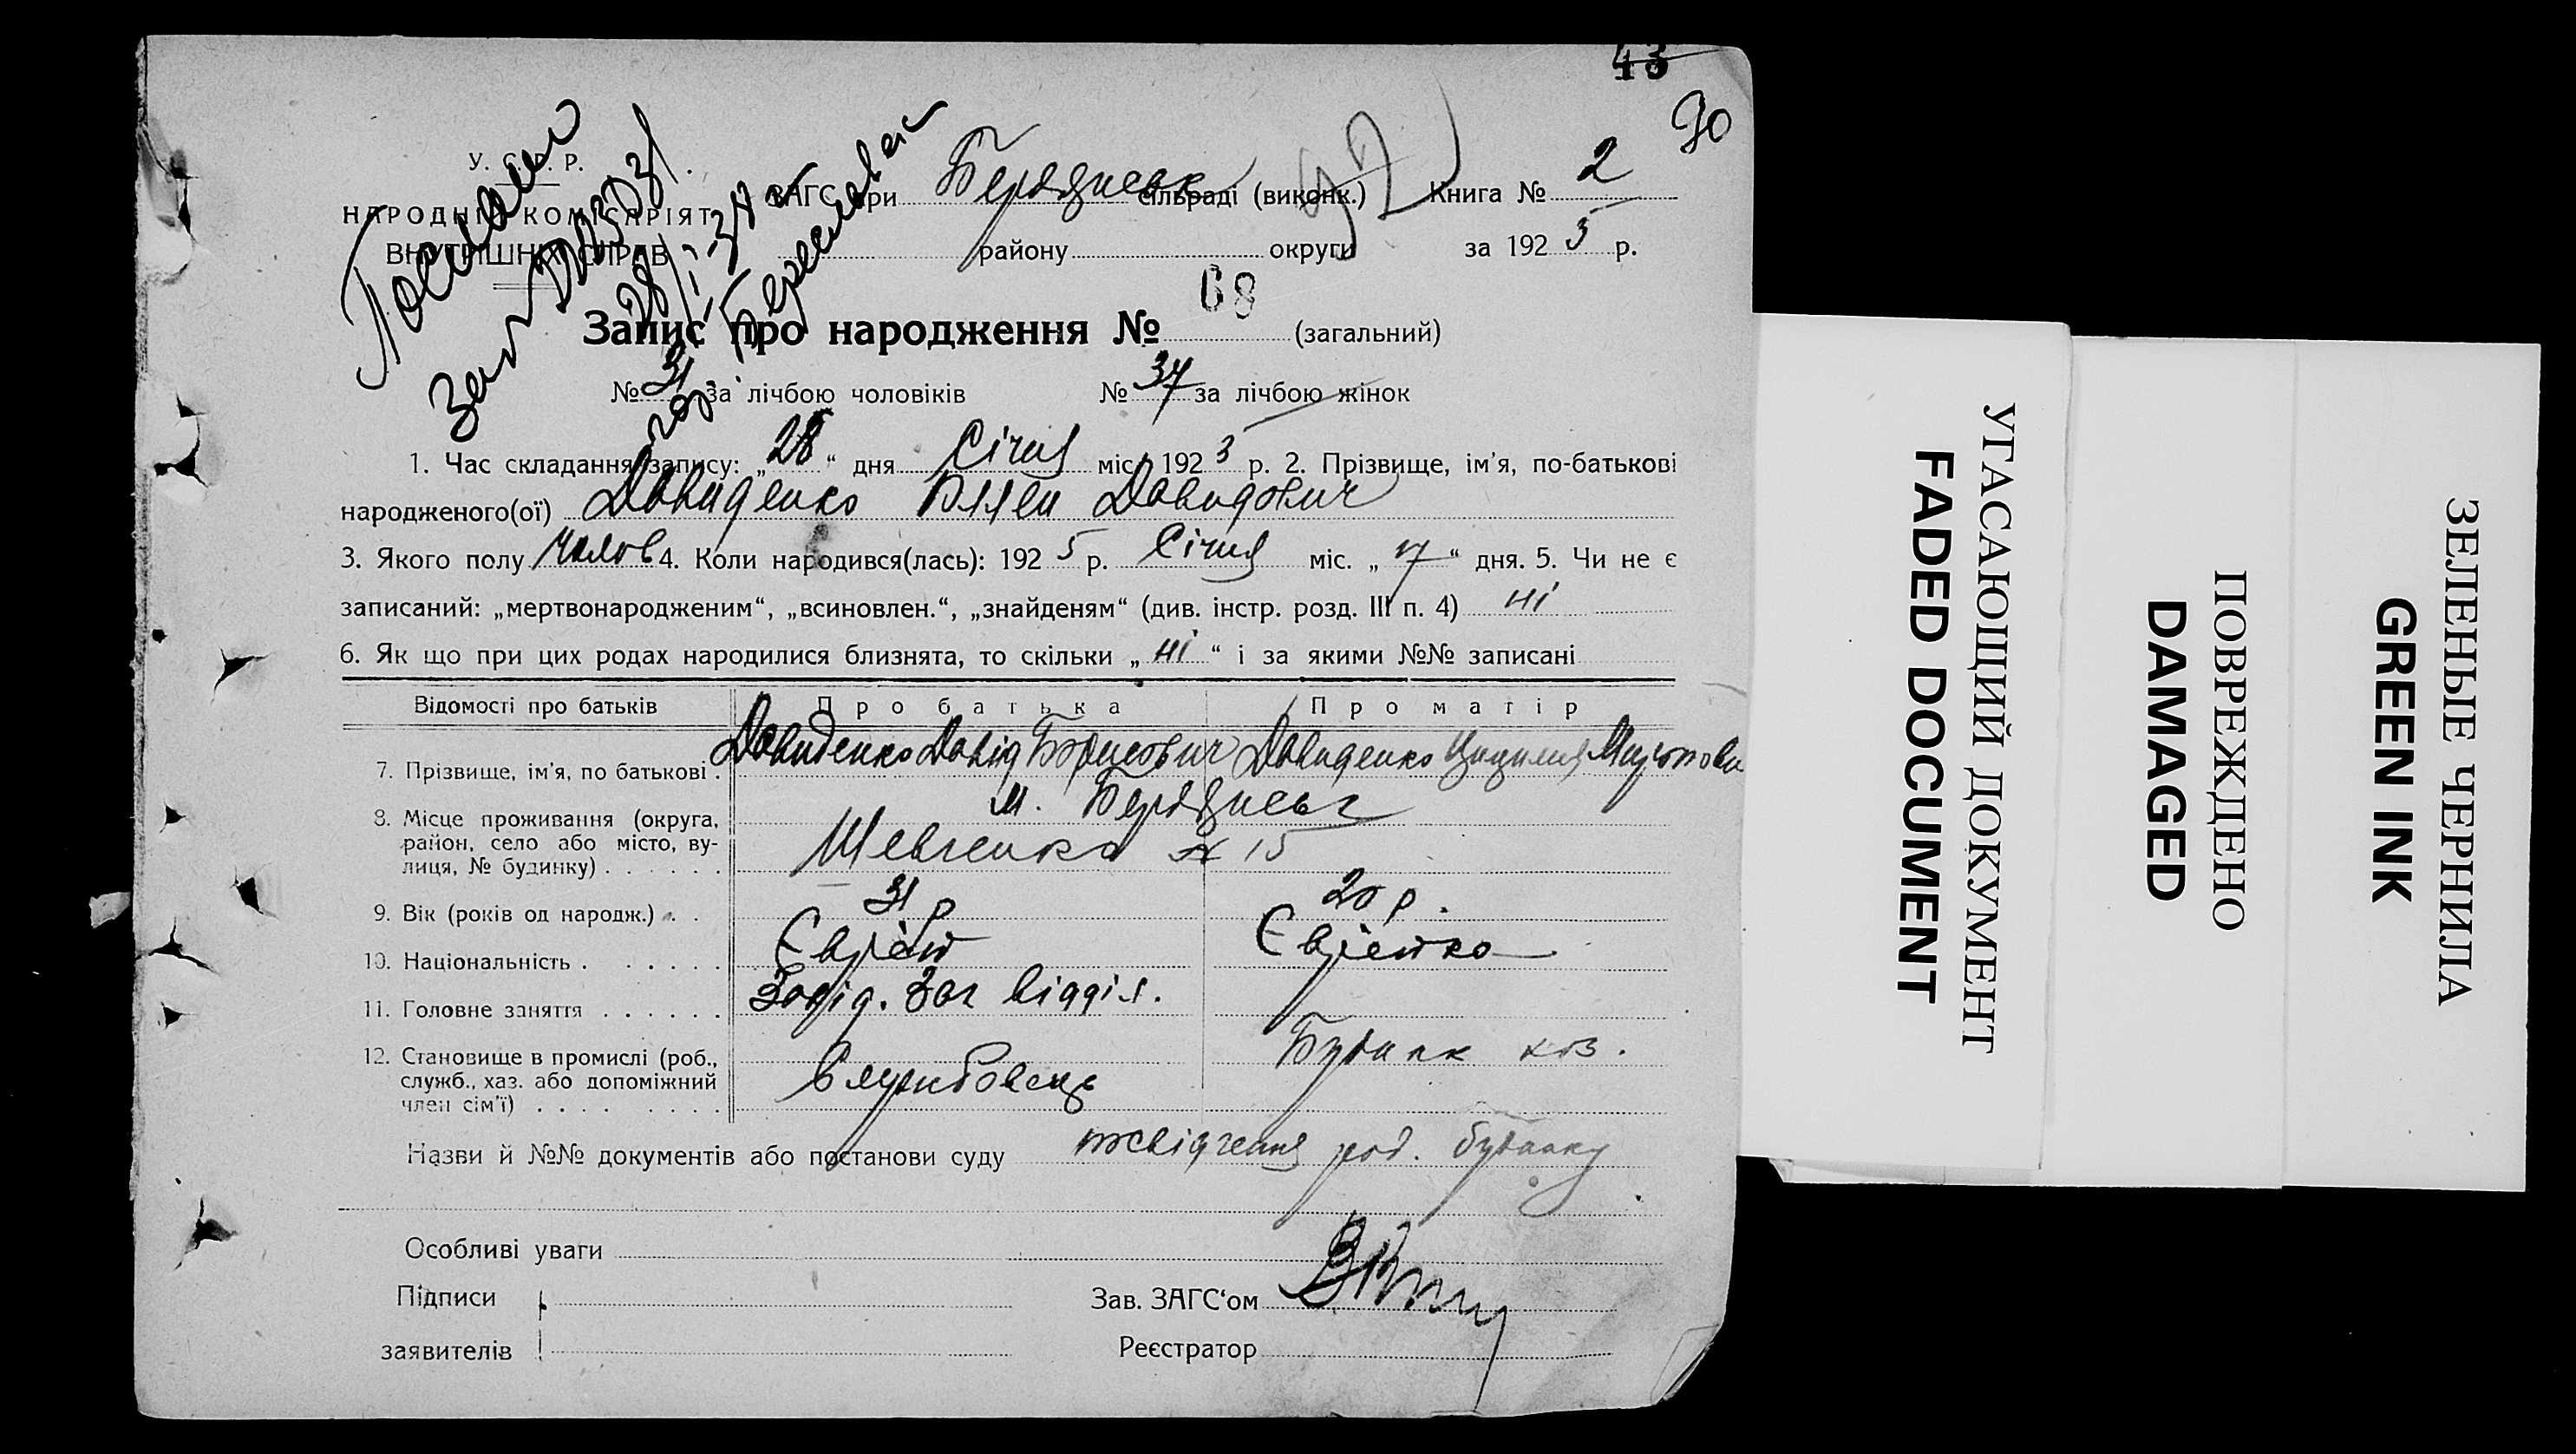 43
90
У. С. Р. Р.
НАРОДНІЙ КОМІСАРІЯТ
ВНУТРІШНІХ СПРАВ
ЗАГС при Бердянськ сільраді (виконк.) Книга № 2
району округи за 1925 р.
Запис про народження № 68 (загальний)
№ 31 за лічбою чоловіків № 37 за лічбою жінок
1. Час складання запису: „28“ дня Січня міс. 1925 р. 2. Прізвище, ім’я, по-батькові
народженого(ої) Давиденко Давидович
3. Якого полу Чолов 4. Коли народився(лась): 1925 р. Січня міс. „17“ дня. 5. Чи не є
записаний: „мертвонародженим“, „всиновлен.“, „знайденям“ (див. інстр. розд. III п. 4) ні
6. Як що при цих родах народилися близнята, то скільки „ні“ і за якими №№ записані
Відомості про батьків Про батька Про матір
7. Прізвище, ім’я, по батькові . Давиденко Давід Борисович Давиденко Цицилия
8. Місце проживання (округа, район, село або місто, вулиця, № будинку) . . . . . . м. Бердянськ
Шевченка № 15
9. Вік (років од народж.) . . 31 р 20 р.
10. Національність . . . . . . Єврей Єврейка
11. Головне заняття . . . . . . Завід. Заг відділ.
12. Становище в промислі (роб., служб., хаз. або допоміжний член сім’ї) . . . . . . . . Службовець
Назви й №№ документів або постанови суду посвідчення род. будинку
Особливі уваги
Підписи
Зав. ЗАГС‘ом
заявителів
Реєстратор
УГАСАЮЩИЙ ДОКУМЕНТ
FADED DOCUMENT
ПОВРЕЖДЕНО
DAMAGED
ЗЕЛЕНЫЕ ЧЕРНИЛА
GREEN INK